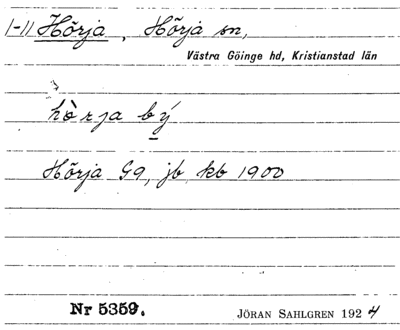 1-11 Hörja, Hörja sn,
Västra Göinge hd, Kristianstad län
hò̀rja bý
Hörja G9, jb, kb 1900
Nr 5359.
JÖRAN SAHLGREN 1924